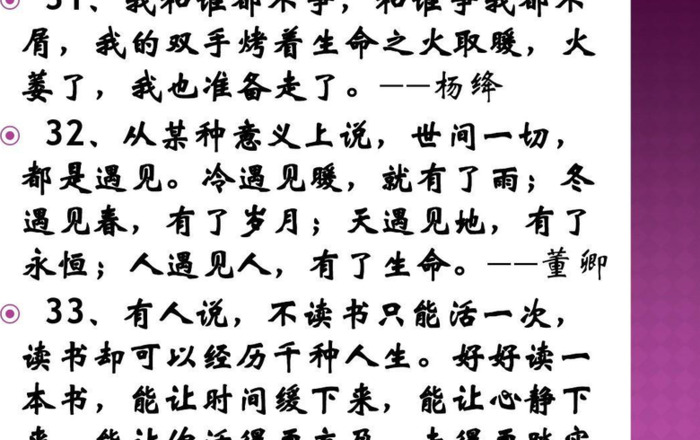 31、我和谁都不争，和谁争我都不
屑，我的双手烤着生命之火取暖，火
萎了，我也准备走了。——杨绛
32、从某种意义上说，世间一切，
都是遇见。冷遇见暖，就有了雨；冬
遇见春，有了岁月；天遇见地，有了
永恒；人遇见人，有了生命。——董卿
33、有人说，不读书只能活一次，
读书却可以经历千种人生。好好读一
本书，能让时间缓下来，能让心静下
来，能让你活得更